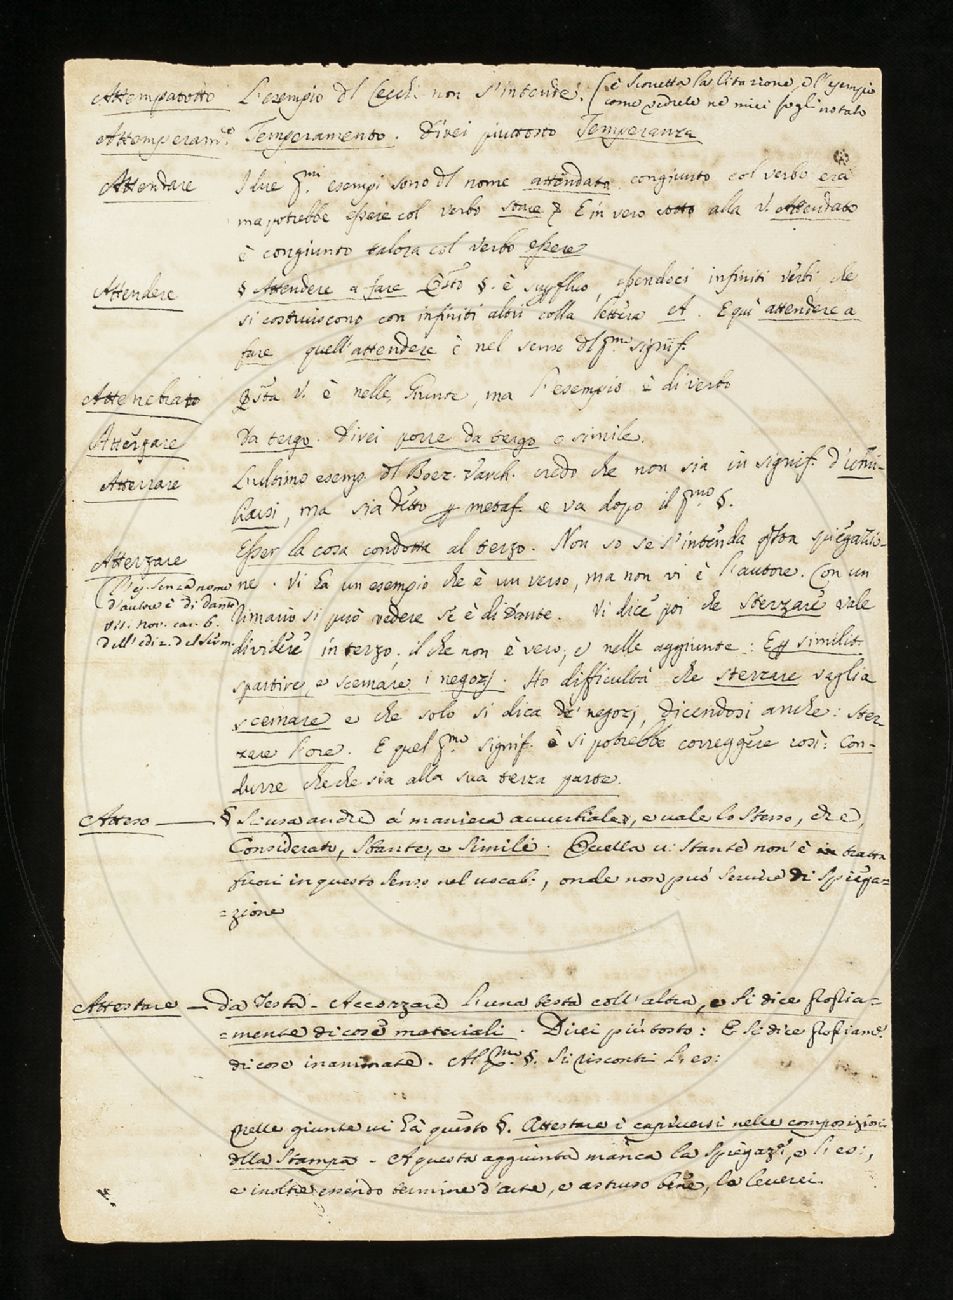 Attempatotto L'esempio dl Cecch. non s'intende. (è scorretta la citazione, e l'esempio
come vedrete ne' miei fogli notato
Attemperam.to Temperamento. Direi piuttosto Temperanza
Attendare I due pmi esempi sono dl nome attendato congiunto col verbo
ma potrebbe essere col verbo stare E in vero alla V. Attendato
è congiunto talora col verbo essere
Attendere § Attendere a fare Qsto §. è supfluo, essendoci infiniti verbi, che
si costruiscono con infiniti altri colla lettera A. E quì attendere a
fare quell'attendere è nel senso dl pmo signif.
Attenebrato Qsta V. è nelle Giunte, ma l'esempio è di verbo
Attergare Da tergo. Direi porre da tergo o simile.
Atterrare L'ultimo esemp. dl Boez. Varch. credo che non sia in signif. d'
, ma sia detto p metaf. e va dopo il pmo §.
Atterzare Esser la cosa condotta al terzo. Non so se s'intenda qsta spiegazio-
L'es. senza nome
d'autore è di Dante
Vit. Nov. car. 6.
dell'ediz. del Serm.
ne. Vi ha un esempio che è un verso, ma non vi è l'autore. Con un
rimario si può vedere se è di Dante. Vi dice poi che sterzare vale
dividere in terzo, il che non è vero, e nelle aggiunte: E p similit.
spartire, e scemare i negozj. Ho difficultà che sterzare vaglia
scemare e che solo si dica de' negozj, dicendosi anche: ster-
zare l'ore. E quel pmo signif. è si potrebbe correggere così: Con-
durre checchesia alla sua terza parte.
Atteso — § Si usa anche a maniera avverbiale, e vale lo stesso, che,
Considerato, Stante, e simili. Quella v. Stante non è tratta
fuori in questo senso nel vocab., onde non può servire di spiega=
=zione
Attestare — Da Testa - Accozzare l'una testa coll'altra, e si dice propria=
=mente di cose materiali. Direi piú tosto: E si dice propriam.e
di cose inanimate. Al pmo §. si riscontri l'es:
Nelle giunte vi hà questo §. Attestare i capiversi nelle composizioni
dlla Stampa - A questa aggiunta manca la spiegaz.e, e l'es:,
e inoltre essendo termine d'arte, e astruso bene, lo leverei.